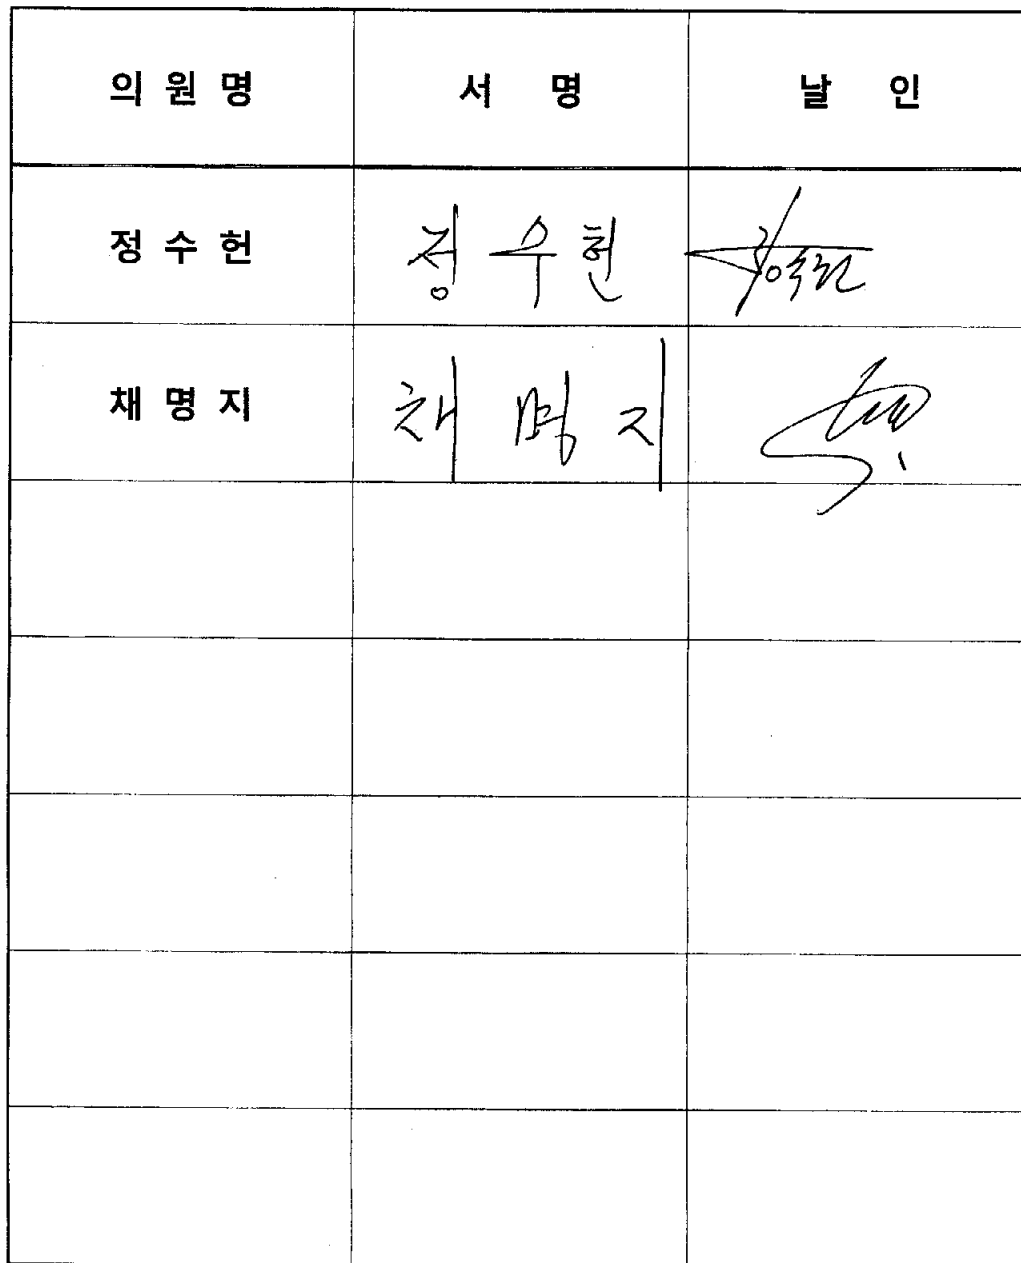 의 원 명 서 명 날 인
정 수 헌 정 수 헌
채 명 지 채 명 지